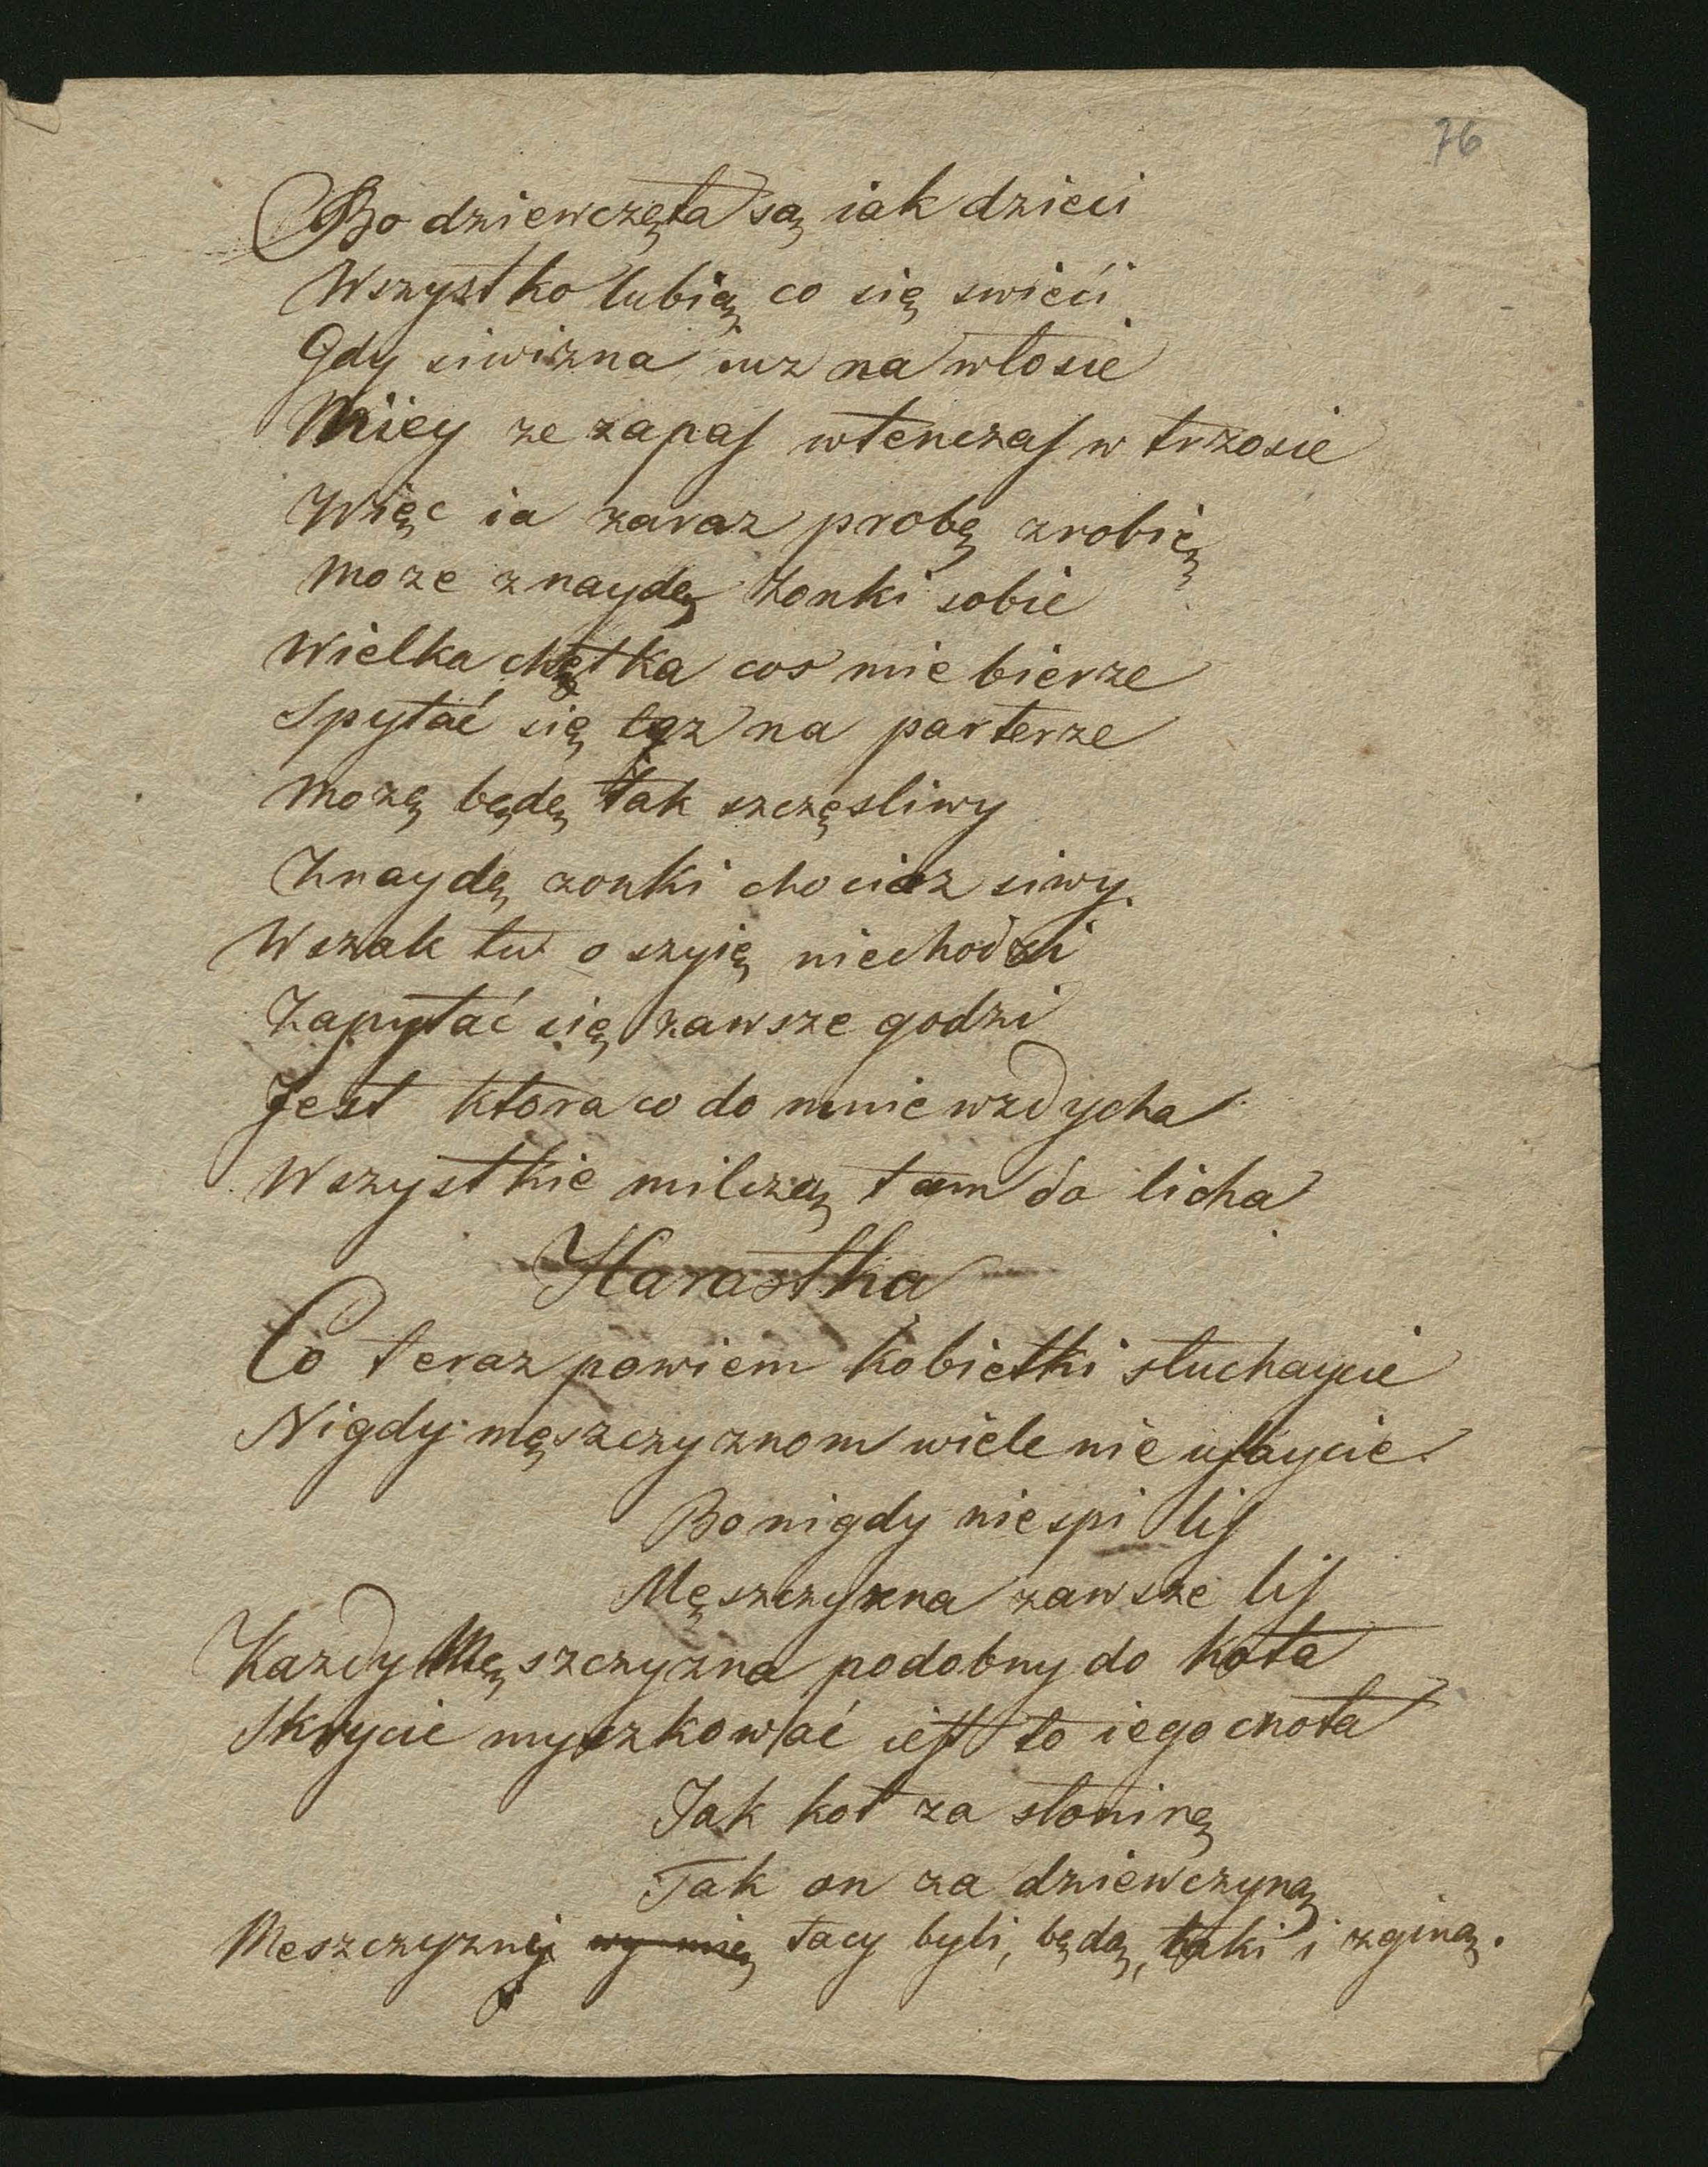 76
Bo dziewczęta są iak dzieci
Wszystko lubią co się swieći
Gdy siwizna iuz na włosie
Miey ze zapas wtenczas w trzosie
Więc ia zaraz probę zrobię
moze znaydę żonki sobie
Wielka chętka cos mie bierze
Spytać się tez na parterze
Możę będę tak szczęsliwy
Znaydę zonki chociaz siwy
Wszak tu o szyię niechodzi
Zapytać się zawsze godzi
Jest ktora co do mnie wzdycha
Wszystkie milczą tam do licha
Harastka
Co teraz powiem kobietki słuchaycie
Nigdy męszczyznom wiele nie ufaycie
Bo nigdy nie spi lis
Męszczyzna zawsze lis
Kazdy Męszczyzna podobny do kota
Skrycie myszkować iest to iego cnota
Jak kot za słoninę
Tak on za dziewczyną
Meszczyzni tacy byli, będą, taki i zginą.